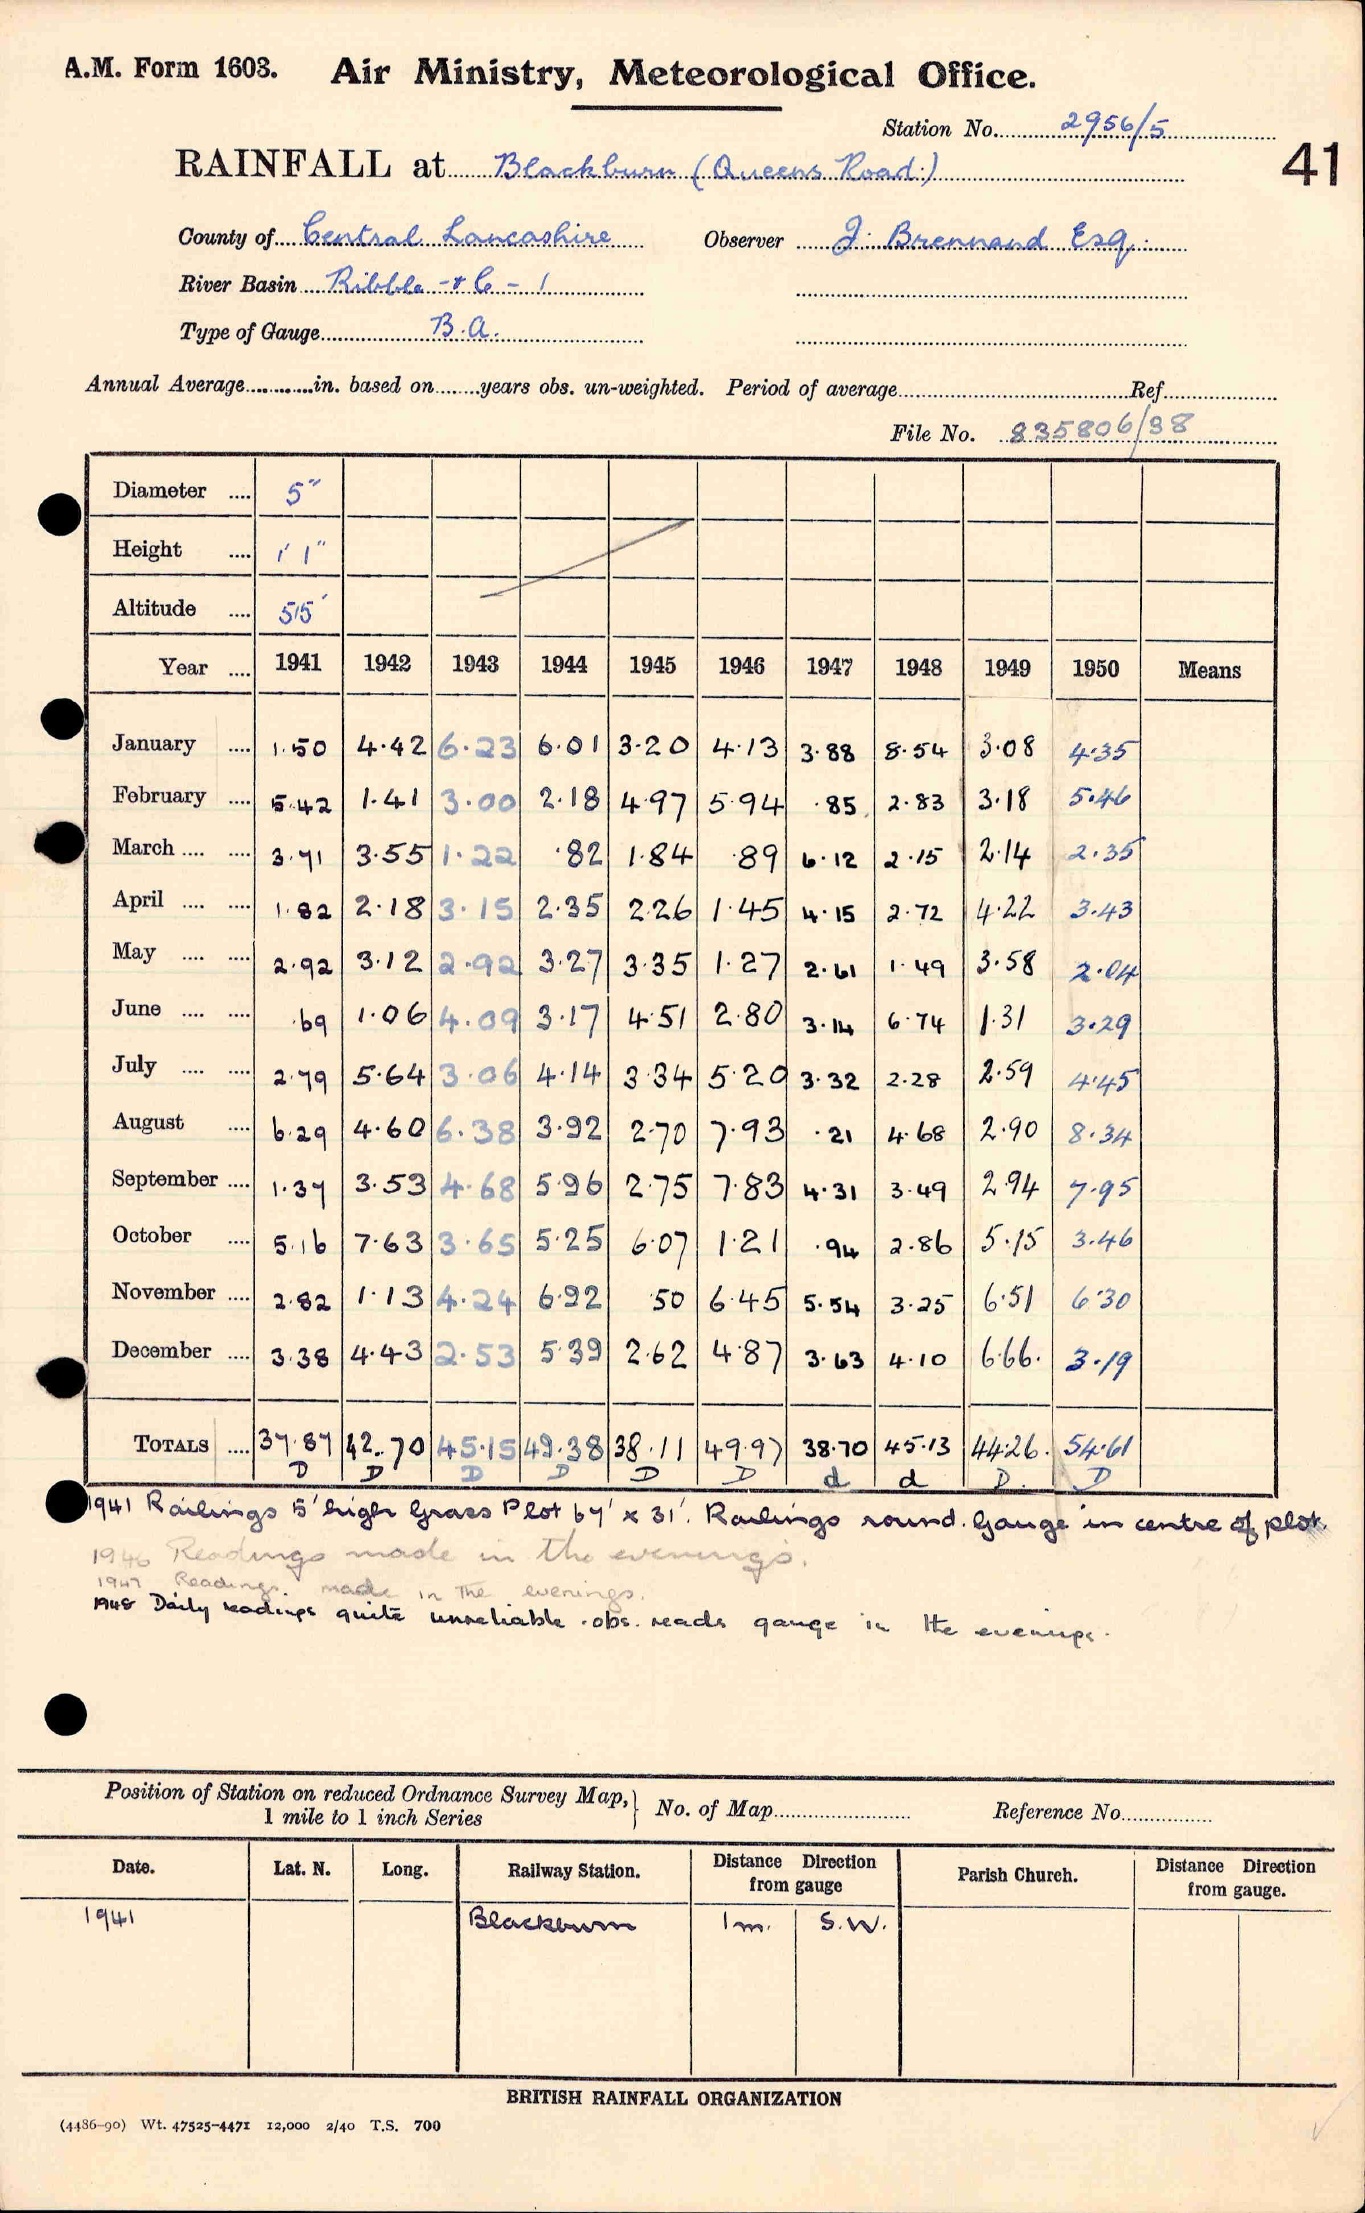 A.M. Form 1603. Air Ministry, Meteorological Office.
Station No. 2956/5
41
RAINFALL at Blackburn (Queens Road.)
County of Central Lancashire Observer J. Brennand Esq.
River Basin Ribble -+C - 1
Type of Gauge B.A.
Annual Average in. based on years obs. un-weighted. Period of average Ref
File No. 835806/38
Diameter 5"
Height 1' 1"
Altitude 515'
Year 1941 1942 1943 1944 1945 1946 1947 1948 1949 1950 Means
January 1.50 4.42 6.23 6.01 3.20 4.13 3.88 8.54 3.08 4.35
February 5.42 1.41 3.00 2.18 4.97 5.94 .85 2.83 3.18 5.46
March 3.71 3.55 1.22 .82 1.84 .89 6.12 2.15 2.14 2.35
April 1.82 2.18 3.15 2.35 2.26 1.45 4.15 2.72 4.22 3.43
May 2.92 3.12 2.92 3.27 3.35 1.27 2.61 1.49 3.58 2.04
June .69 1.06 4.09 3.17 4.51 2.80 3.14 6.74 1.31 3.29
July 2.79 5.64 3.06 4.14 3.34 5.20 3.32 2.28 2.59 4.45
August 6.29 4.60 6.38 3.92 2.70 7.93 .21 4.68 2.90 8.34
September 1.37 3.53 4.68 5.96 2.75 7.83 4.31 3.49 2.94 7.95
October 5.16 7.63 3.65 5.25 6.07 1.21 .94 2.86 5.15 3.46
November 2.82 1.13 4.24 6.92 50 6.45 5.54 3.25 6.51 6.30
December 3.38 4.43 2.53 5.39 2.62 4.87 3.63 4.10 6.66. 3.19
TOTALS 37.87 42.70 45.15 49.38 38.11 49.97 38.70 45.13 44.26. 54.61
D D D D D D d d D. D
1941 Railings 5' high Grass Plot 67' x 31'. Railings round. Gauge in centre of plot
1946 Readings made in the evenings.
1947 Readings made in the evenings.
1948 Daily readings quite unreliable. obs. reads gauge in the evenings.
Position of Station on reduced Ordnance Survey Map, 1 mile to 1 inch Series } No. of Map Reference No.
Date. Lat. N. Long. Railway Station. Distance Direction from gauge Parish Church. Distance Direction from gauge.
1941 Blackburn 1m. S.W.
BRITISH RAINFALL ORGANIZATION
(4486-90) Wt. 47525-4471 12,000 2/40 T.S. 700